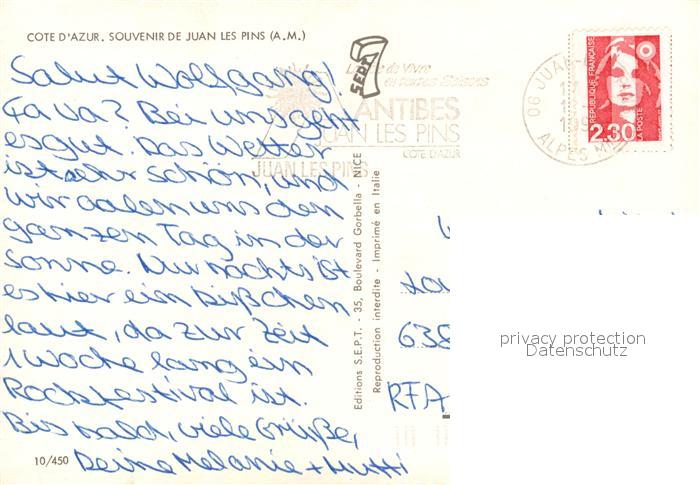 COTE D'AZUR. SOUVENIR DE JUAN LES PINS (A.M.)
Salut Wolfgang!
Ça va? Bei uns geht
es gut. Das Wetter
ist sehr schön, und
wir aalen uns den
ganzen Tag in der
Sonne. Nur nachts ist
es hier ein bißchen
laut, da zur Zeit
1 Woche lang ein
Rockfestival ist.
Bis bald, viele Grüße,
Deine Melanie + Mutti
10/450
SEPT
de Vivre
en toutes Saisons
ANTIBES
JUAN LES PINS
COTE D'AZUR
JUAN LES PINS
06 JUAN-
ALPES M
RÉPUBLIQUE FRANÇAISE
LA POSTE
2,30
Editions S.E.P.T. - 35, Boulevard Gorbella - NICE
Reproduction interdite - Imprimé en Italie
638
RFA
privacy protection
Datenschutz